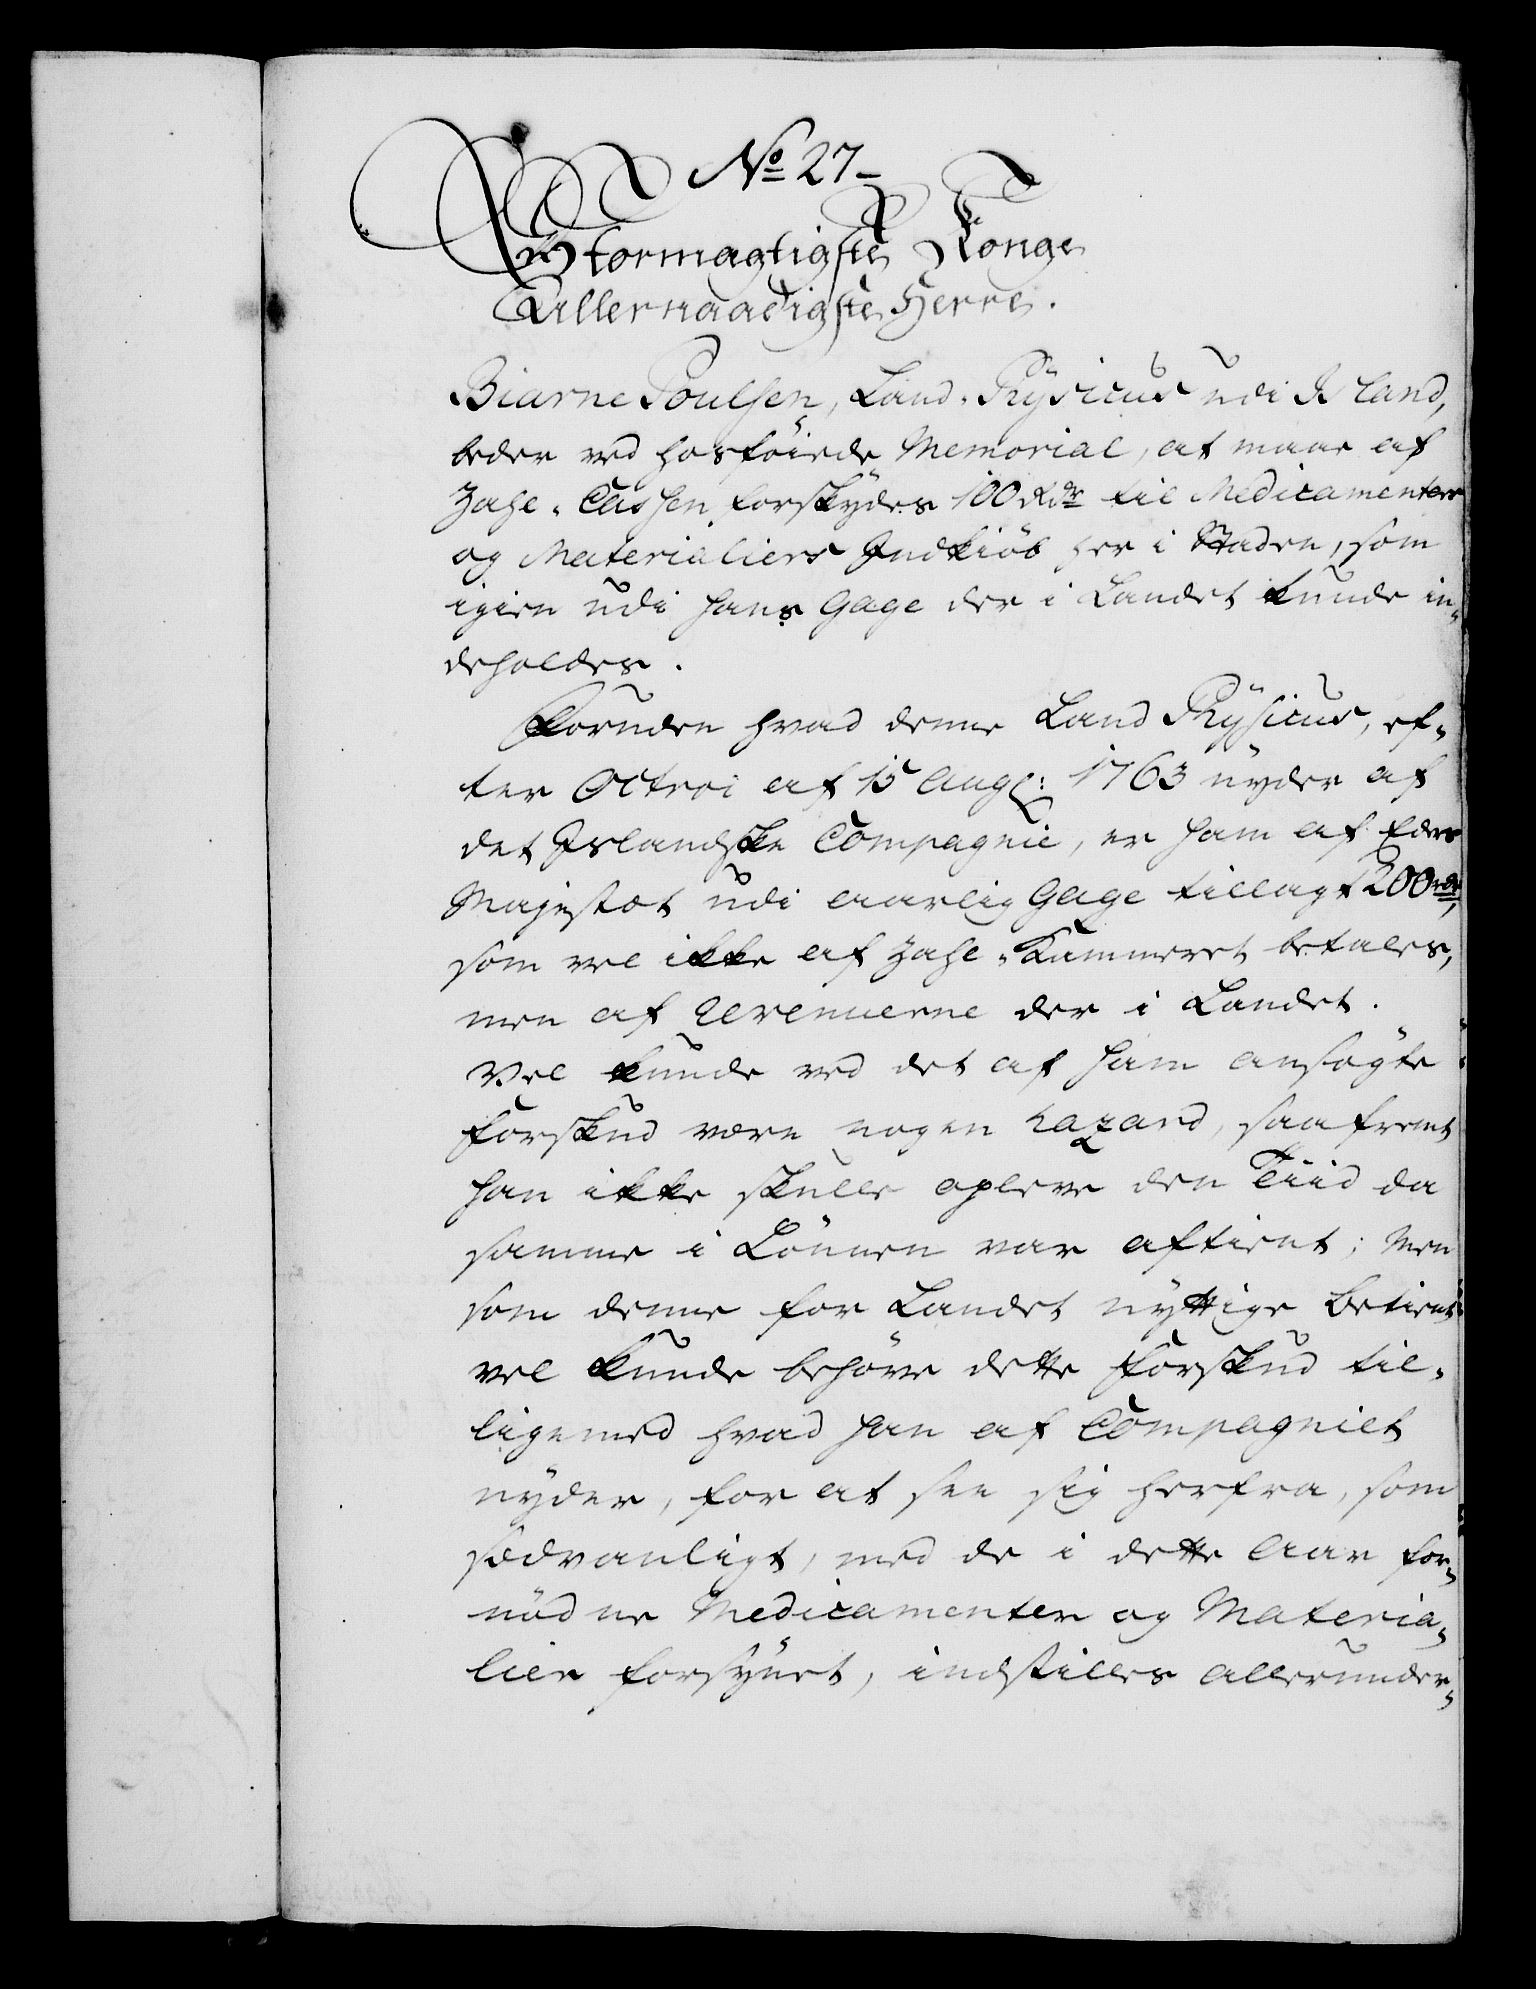 No 27
Stormagtigste Konge
Allernaadigste Herre.
Biarne Poulsen, Land-Physicus udi Island,
beder ved hosföiede Memorial, at maae af
Zahl-Cassen forskydes 100 Rdr til Medicamenters
og Materialiers Indkiöb her i Staden, som
igien udi hans Gage der i Landet kunde in-
deholdes.
Foruden hvad denne Land Physicus, ef-
ter Octroi af 15 Aug: 1763 nyder af
det Islandske Compagnie, er ham af Eders
Majestæt udi aarlig Gage tillagt 200 rdr,
som vel ikke af Zahl-Kammeret betales,
men af Revenuerne der i Landet.
Vel kunde ved det af ham ansøgte
Forskud være nogen hazard, saafremt
han ikke skulle opleve den Tiid da
samme i Lönnen var aftient; Men
som denne for Landet nyttige Betient
vel kunde behöve dette Forskud til-
ligemed hvad han af Compagniet
nyder, for at see sig herfra, som
sædvanligt, med de i dette Aar for-
nödne Medicamenter og Materia-
lier forsynet, indstilles allerunder-